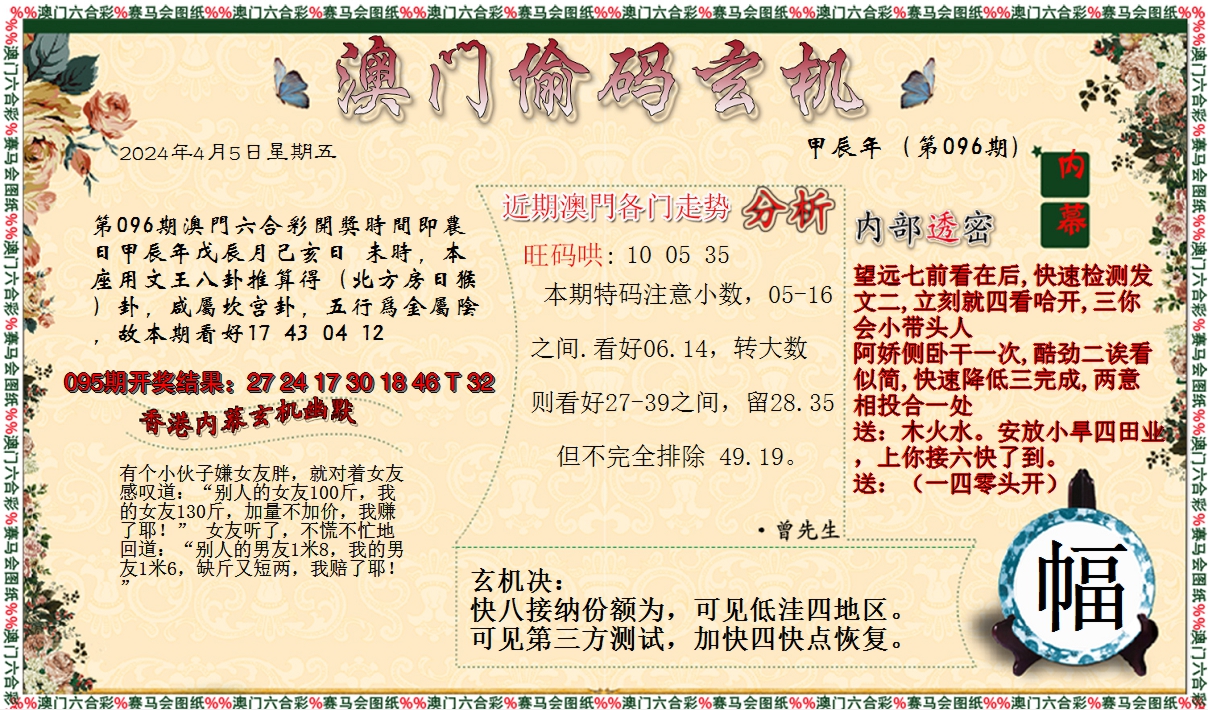 %%澳门六合彩%赛马会图纸%%澳门六合彩%赛马会图纸%%澳门六合彩%赛马会图纸%%澳门六合彩%赛马会图纸%%澳门六合彩%赛马会图纸%%澳门六合彩%赛马会图纸%%
澳门偷码玄机
2024年4月5日星期五
甲辰年（第096期）
内幕
第096期澳門六合彩開獎時間即農
日甲辰年戊辰月己亥日 未時，本
座用文王八卦推算得（北方房日猴
）卦，咸屬坎宫卦，五行爲金屬陰
，故本期看好17 43 04 12
095期开奖结果：27 24 17 30 18 46 T 32
香港内幕玄机幽默
有个小伙子嫌女友胖，就对着女友
感叹道：“别人的女友100斤，我
的女友130斤，加量不加价，我赚
了耶！” 女友听了，不慌不忙地
回道：“别人的男友1米8，我的男
友1米6，缺斤又短两，我赔了耶！
”
近期澳門各门走势 分析
旺码哄: 10 05 35
本期特码注意小数，05-16
之间.看好06.14，转大数
则看好27-39之间，留28.35
但不完全排除 49.19。
·曾先生
内部透密
望远七前看在后,快速检测发
文二,立刻就四看哈开,三你
会小带头人
阿娇侧卧干一次,酷劲二诶看
似简,快速降低三完成,两意
相投合一处
送：木火水。安放小旱四田业
，上你接六快了到。
送：（一四零头开）
玄机决：
快八接纳份额为，可见低洼四地区。
可见第三方测试，加快四快点恢复。
幅
%%澳门六合彩%赛马会图纸%%澳门六合彩%赛马会图纸%%澳门六合彩%赛马会图纸%%澳门六合彩%赛马会图纸%%澳门六合彩%赛马会图纸%%澳门六合彩%赛马会图纸%%